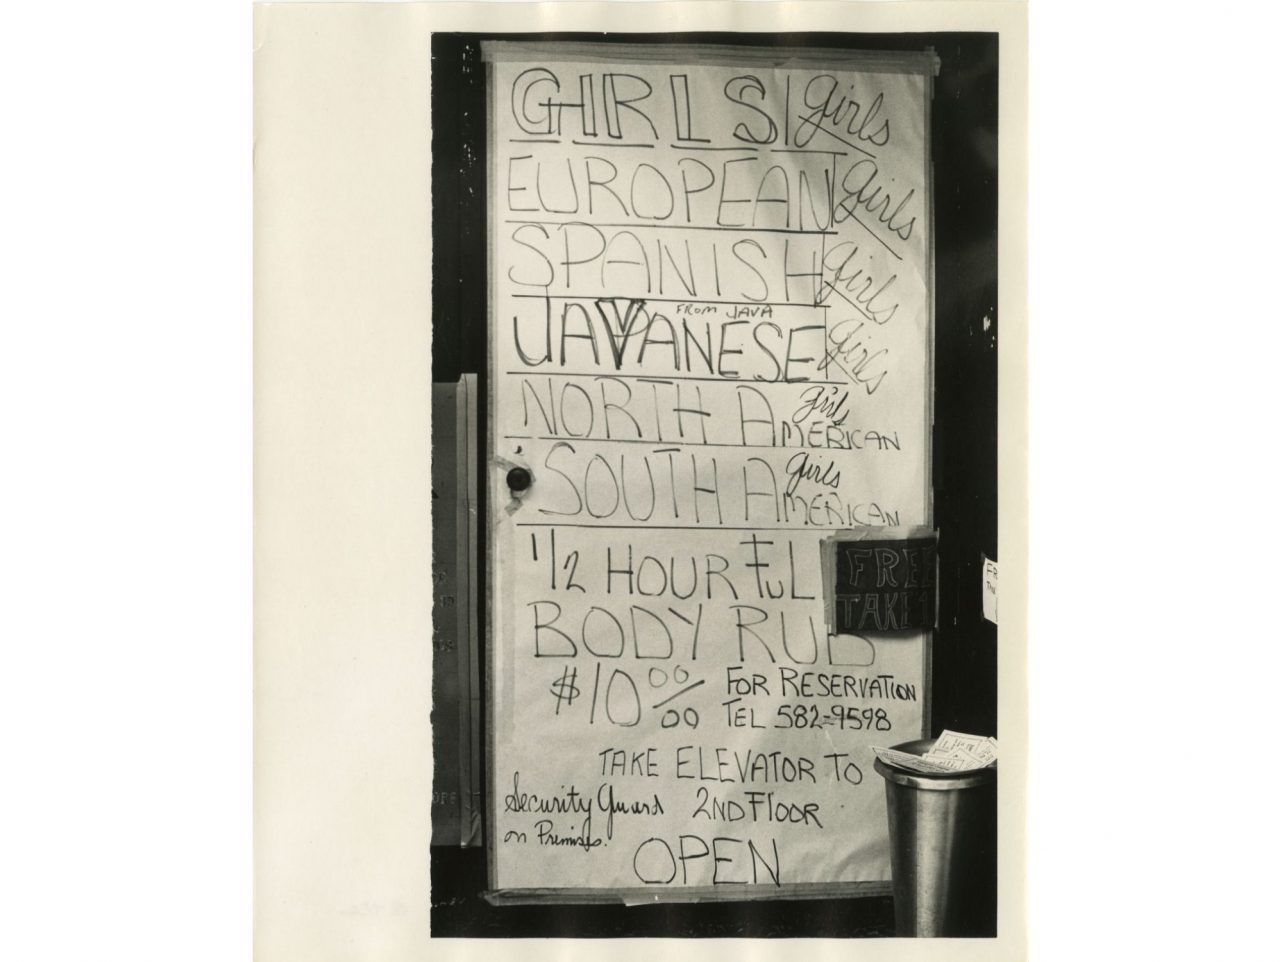 GIRLS girls
EUROPEAN girls
SPANISH girls
FROM JAVA
JAVANESE girls
NORTH AMERICAN girls
SOUTH AMERICAN girls
1/2 HOUR FUL
BODY RUB
FREE
TAKE 1
$10 00/00
FOR RESERVATION
TEL 582-9598
TAKE ELEVATOR TO
2ND FLOOR
Security Guard
on Premises.
OPEN